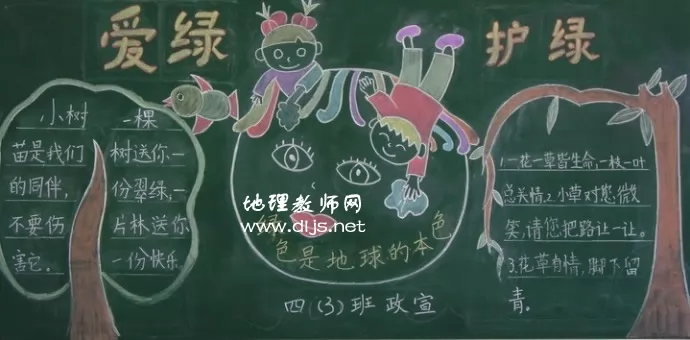 爱绿
护绿
小树
苗是我们
的同伴,
不要伤
害它。
一棵
树送你一
份翠绿,一
片林送你
一份快乐
地理教师网
www.dljs.net
绿
色是地球的本色
四(3)班政宣
1.一花一草皆生命,一枝一叶
总关情.2.小草对您微
笑,请您把路让一让。
3.花草有情,脚下留
青。